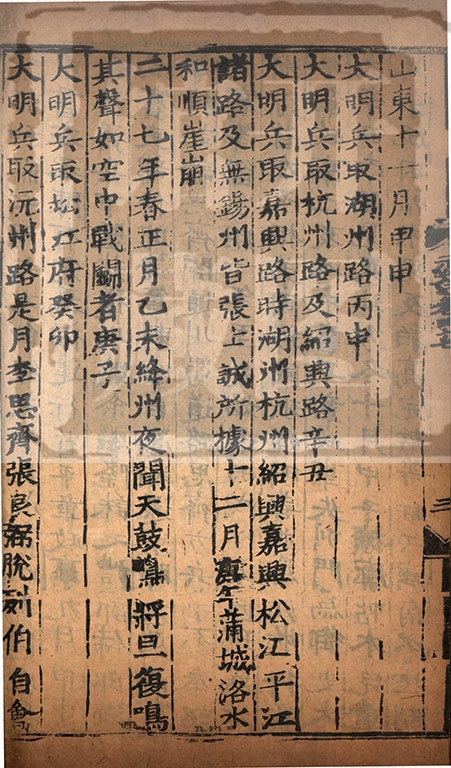 山東十一月甲申
大明兵取湖州路丙申
大明兵取杭州路及紹興路辛丑
大明兵取嘉興路時湖州杭州紹興嘉興松江平江
諸路及無錫州皆張士誠所據十二月庚午蒲城洛水
和順崖崩
二十七年春正月乙未絳州夜聞天鼓鳴將旦復鳴
其聲如空中戰鬭者庚子
大明兵取松江府癸卯
大明兵取沅州路是月李思齊張良弼脫列伯自會